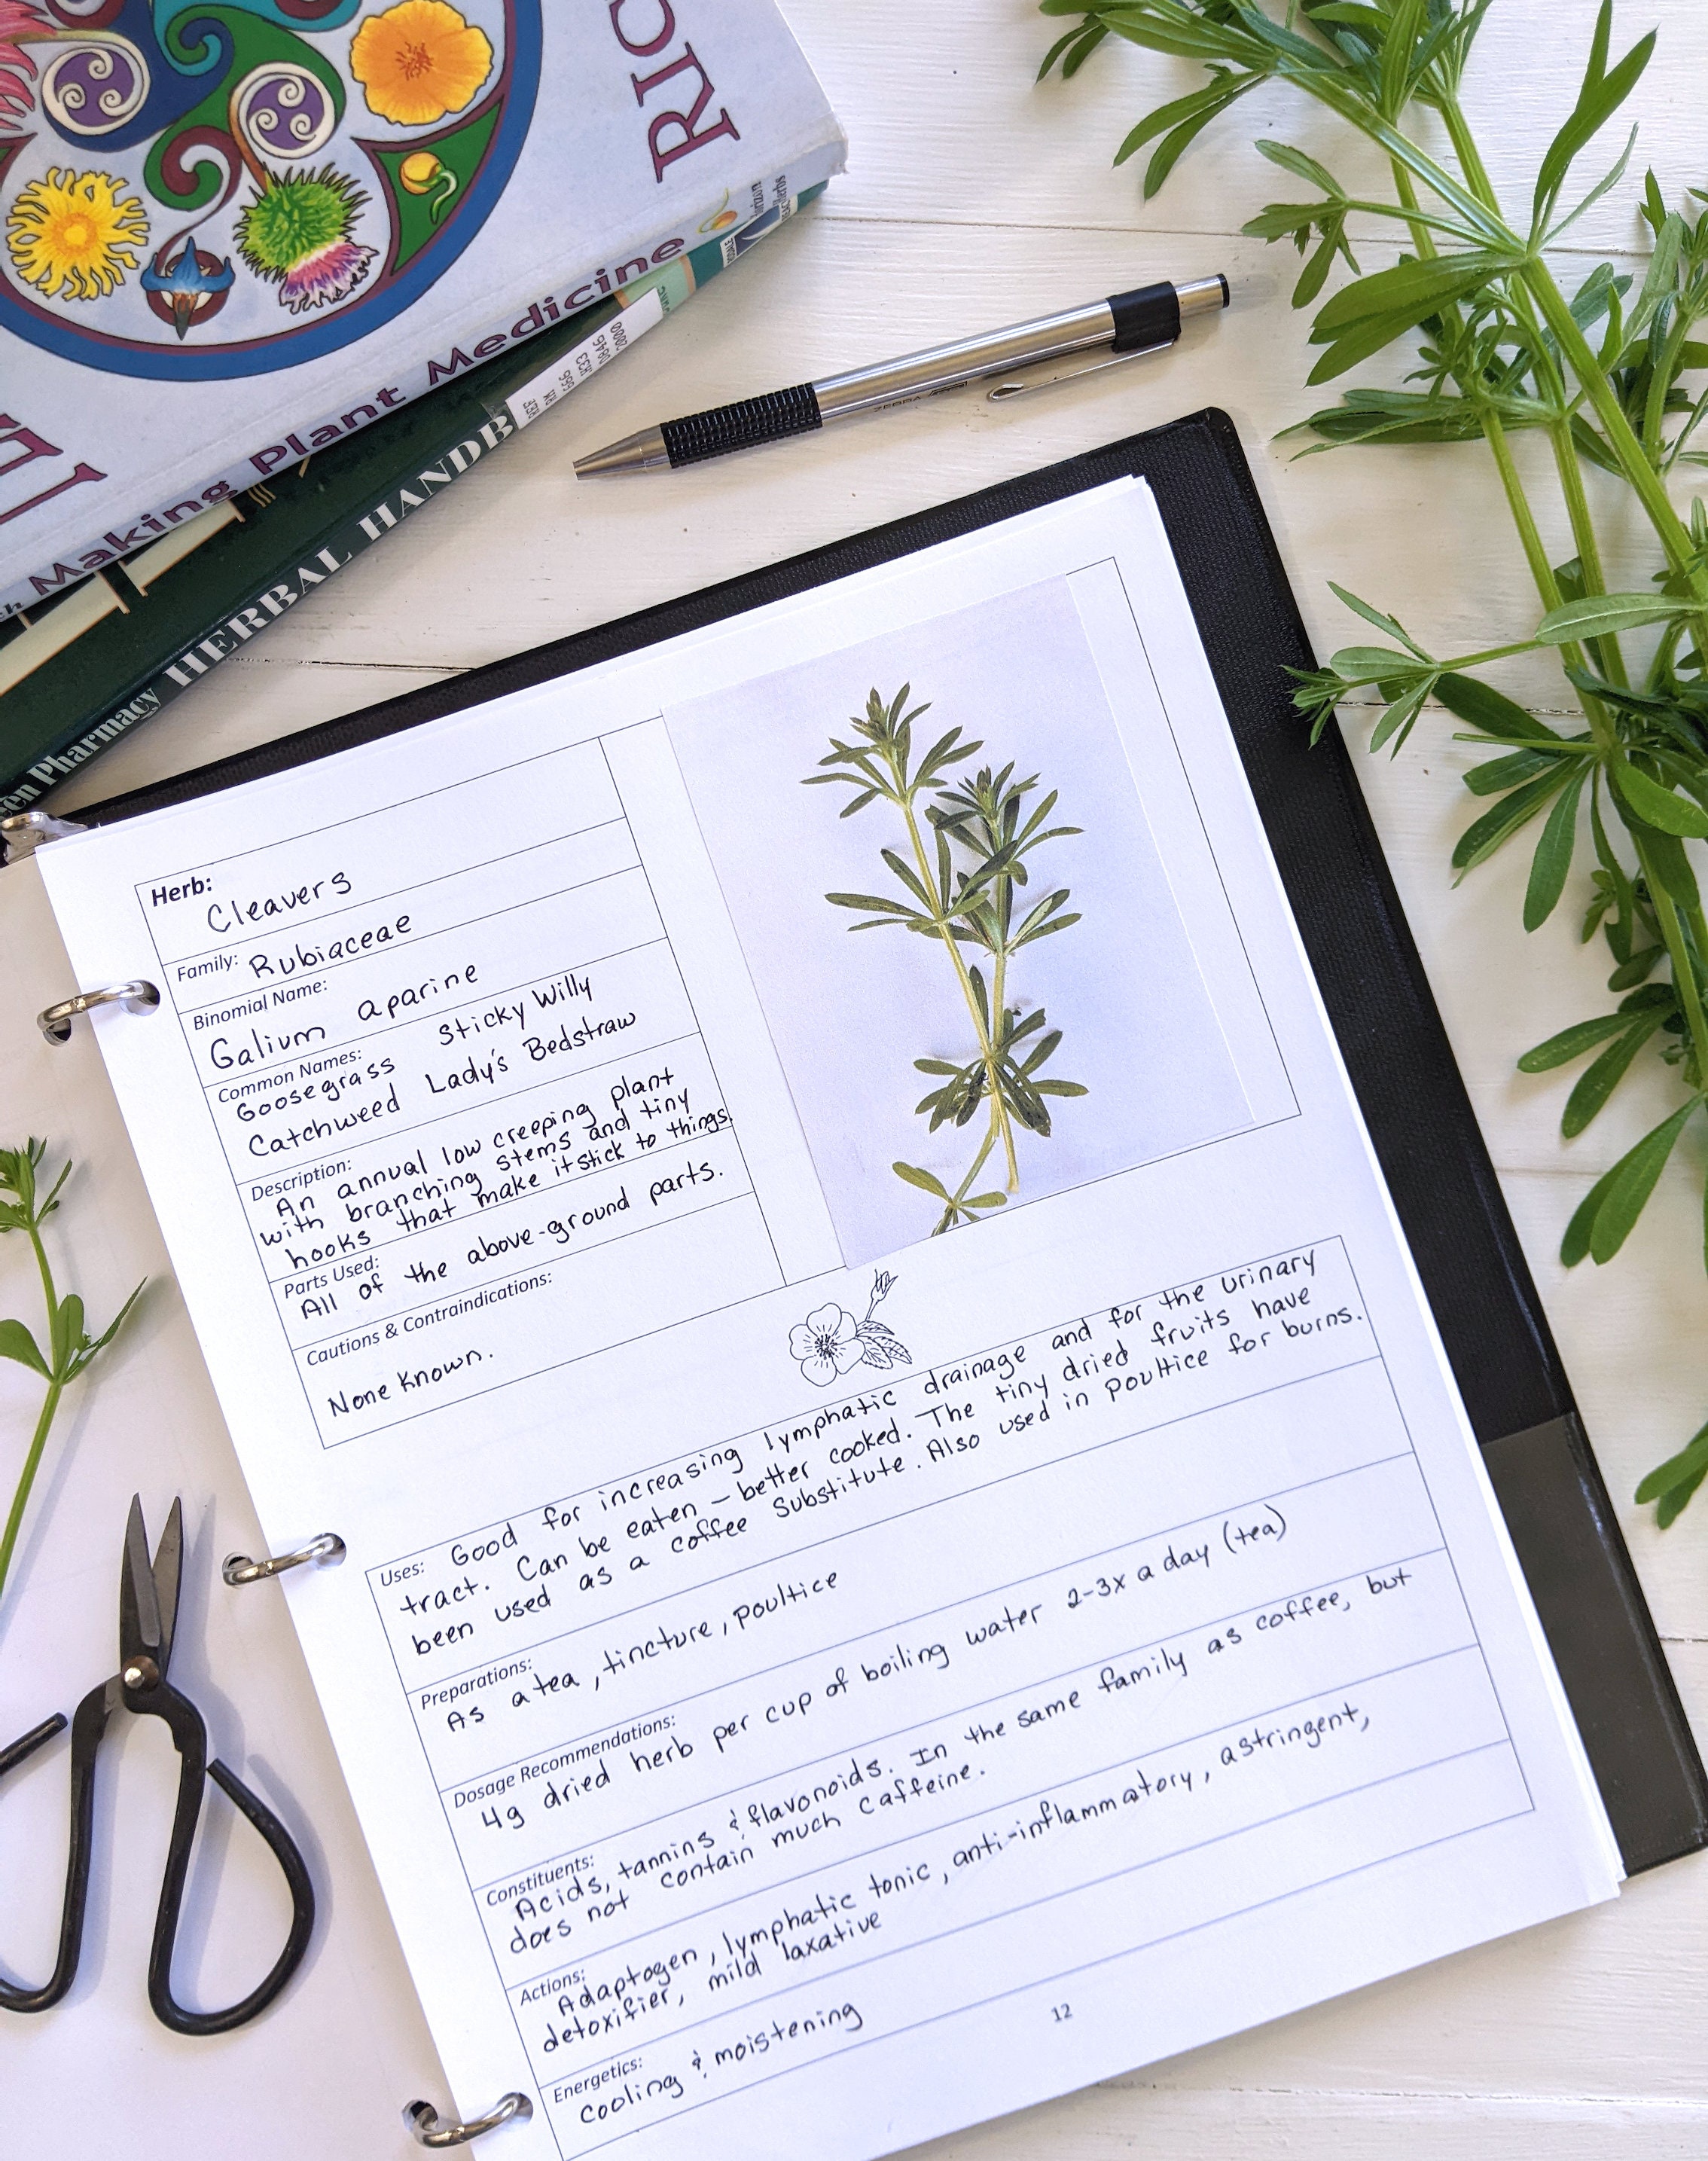 RIC
Making Plant Medicine
Pharmacy HERBAL HANDB
REF
RM
666
H33
O846
2000
ZEBRA
Herb:
Cleavers
Family: Rubiaceae
Binomial Name:
Galium aparine
Common Names:
Goosegrass Sticky Willy
Catchweed Lady's Bedstraw
Description:
An annual low creeping plant
with branching stems and tiny
hooks that make it stick to things.
Parts Used:
All of the above-ground parts.
Cautions & Contraindications:
None Known.
Uses: Good for increasing lymphatic drainage and for the urinary
tract. Can be eaten – better cooked. The tiny dried fruits have
been used as a coffee Substitute. Also used in poultice for burns.
Preparations:
As a tea, tincture, poultice
Dosage Recommendations:
4g dried herb per cup of boiling water 2-3x a day (tea)
Constituents:
Acids, tannins & flavonoids. In the same family as coffee, but
does not contain much caffeine.
Actions:
Adaptogen, lymphatic tonic, anti-inflammatory, astringent,
detoxifier, mild laxative
Energetics:
cooling & moistening
12